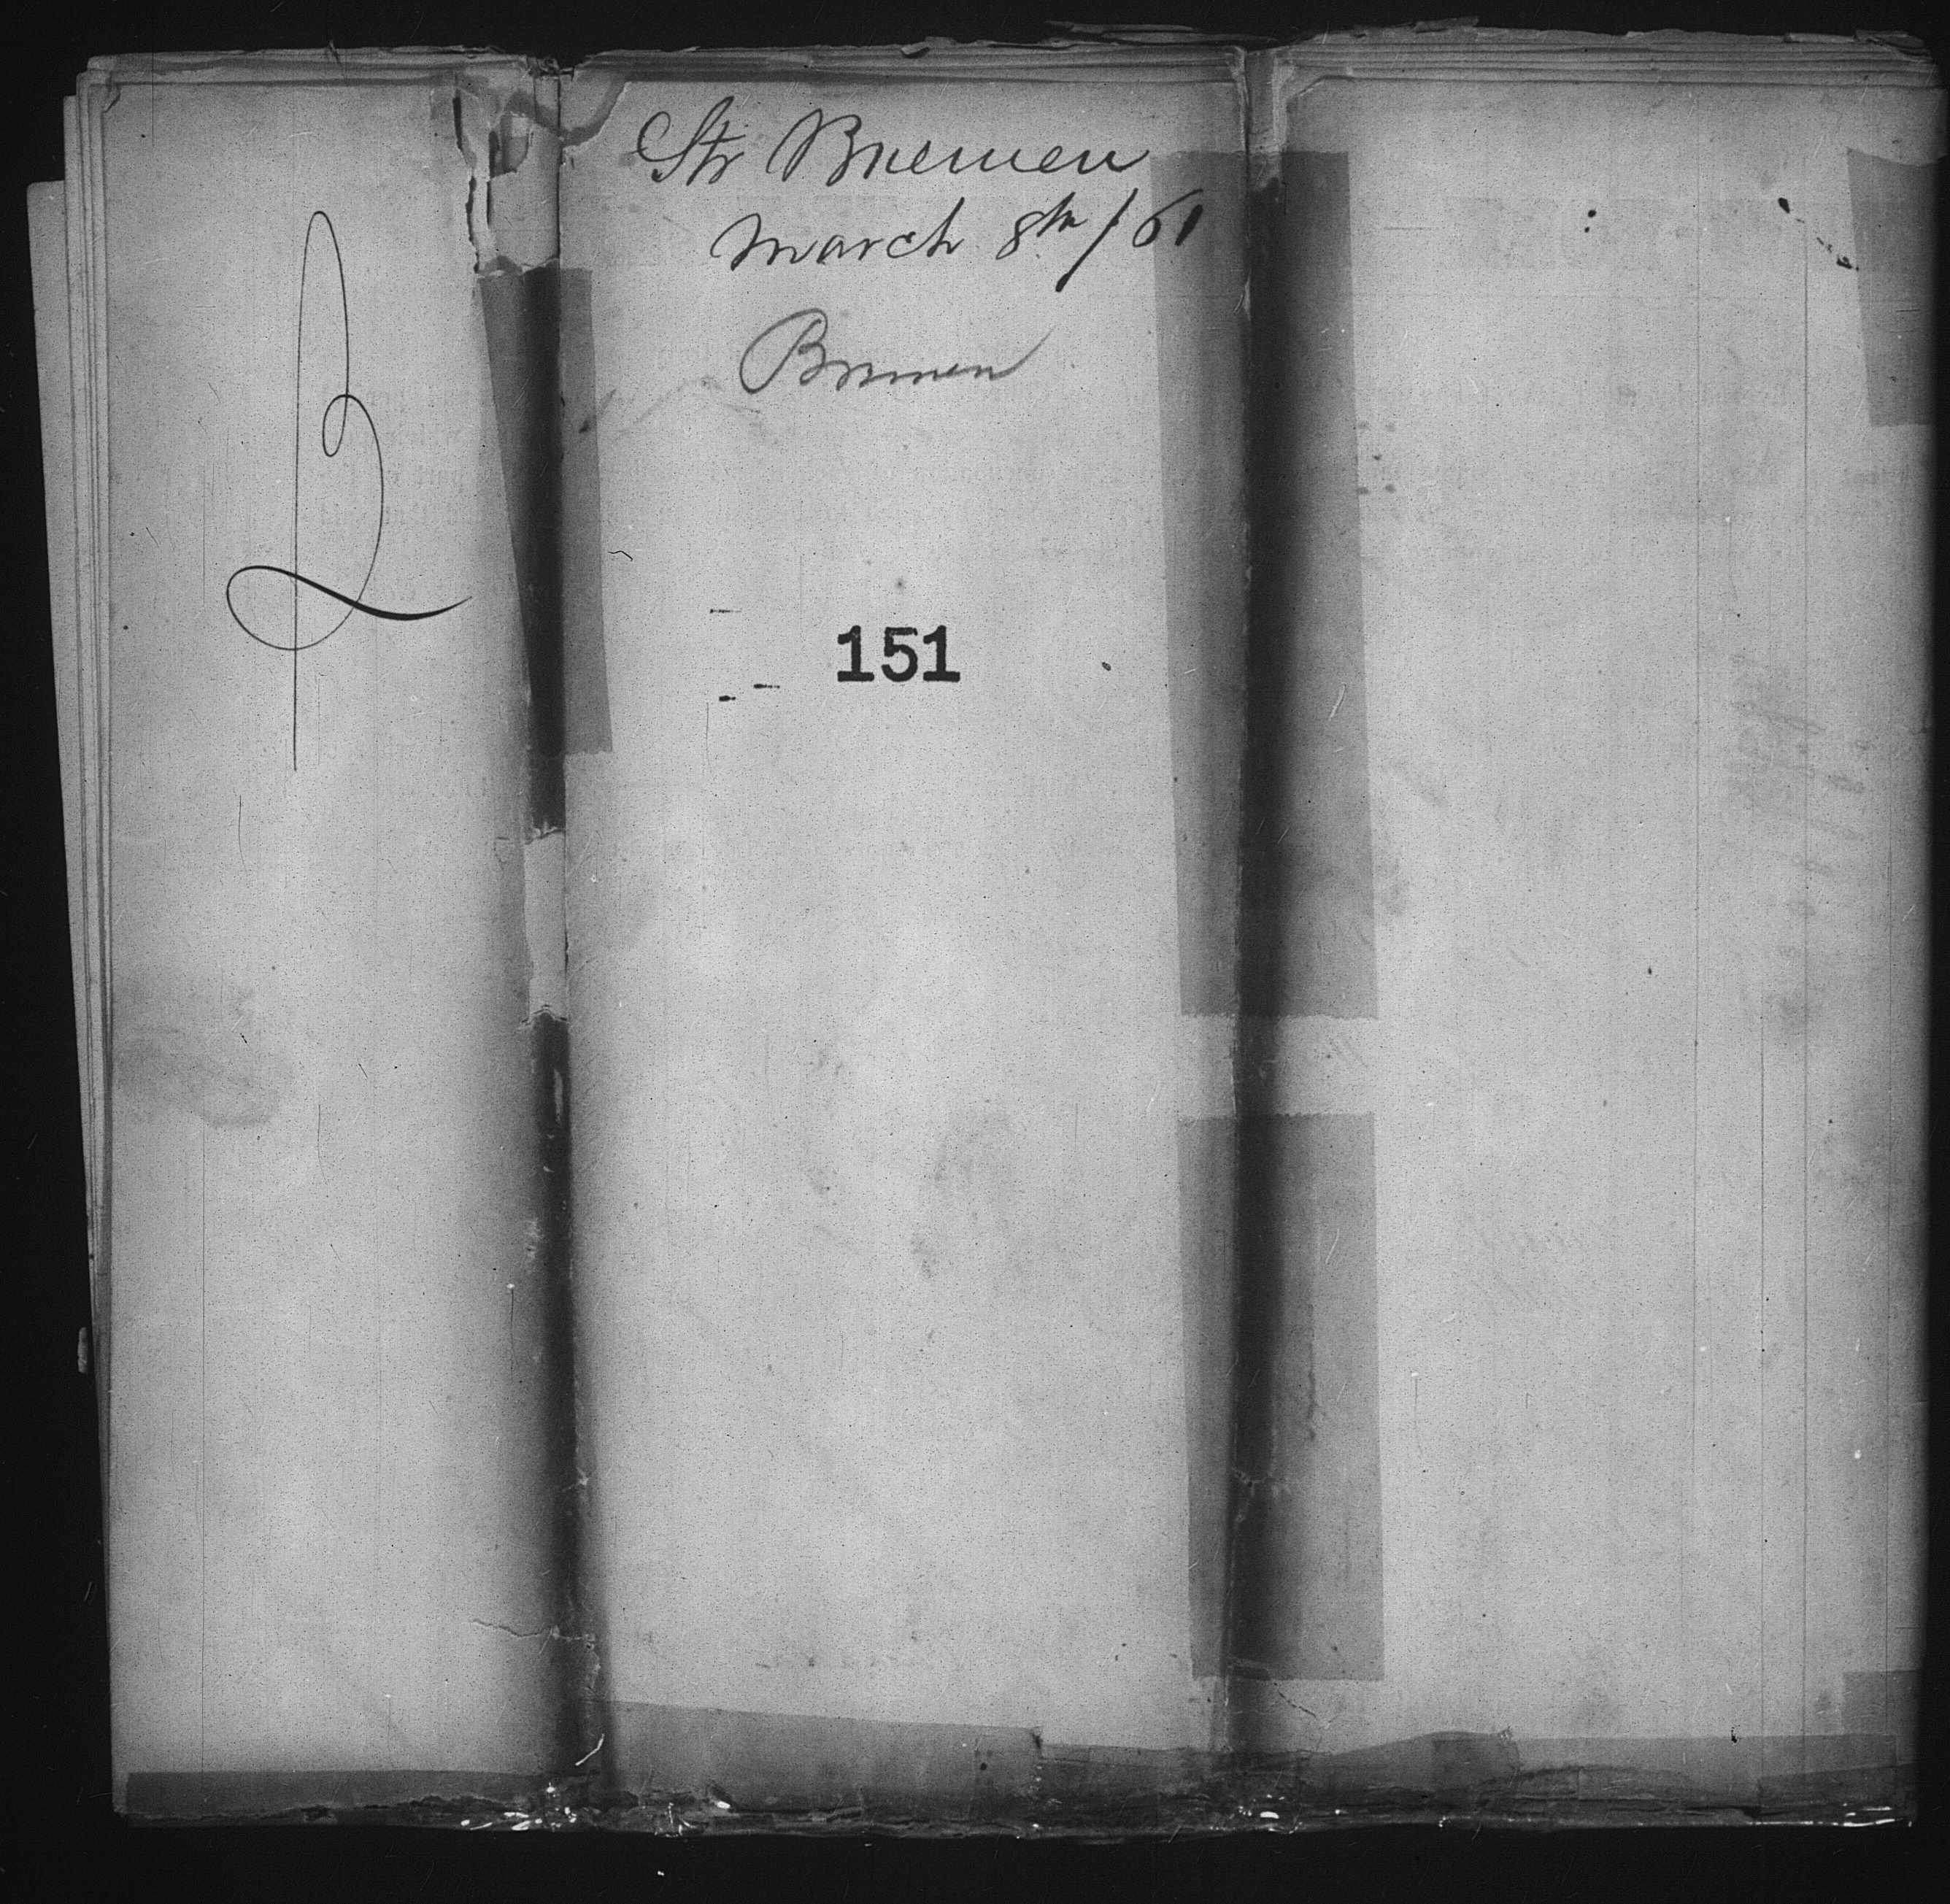 B
Str Bremen
March 8th/61
Bremen
151